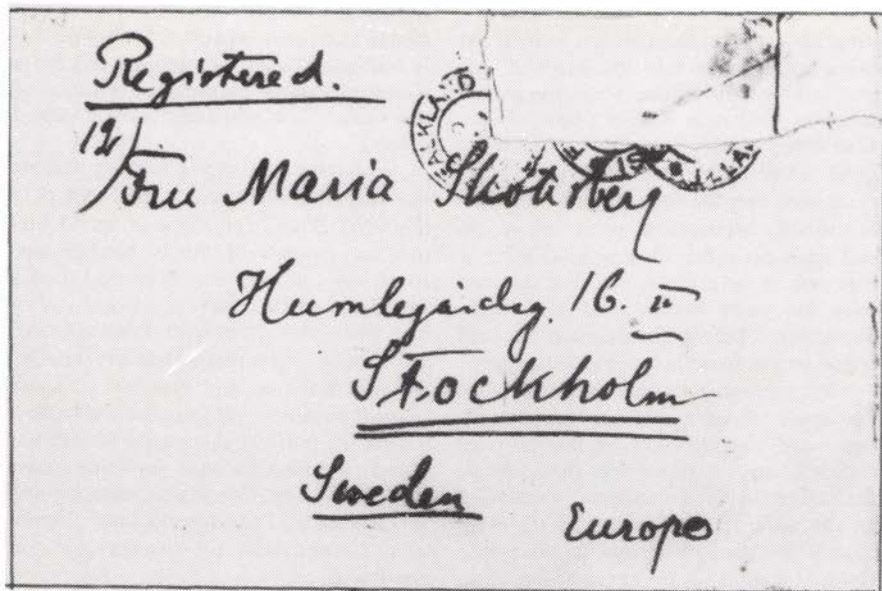 Registered.
FALKLAND
12/
Fru Maria Skottsberg
Humlegårdsg. 16. II
Stockholm
Sweden
Europe